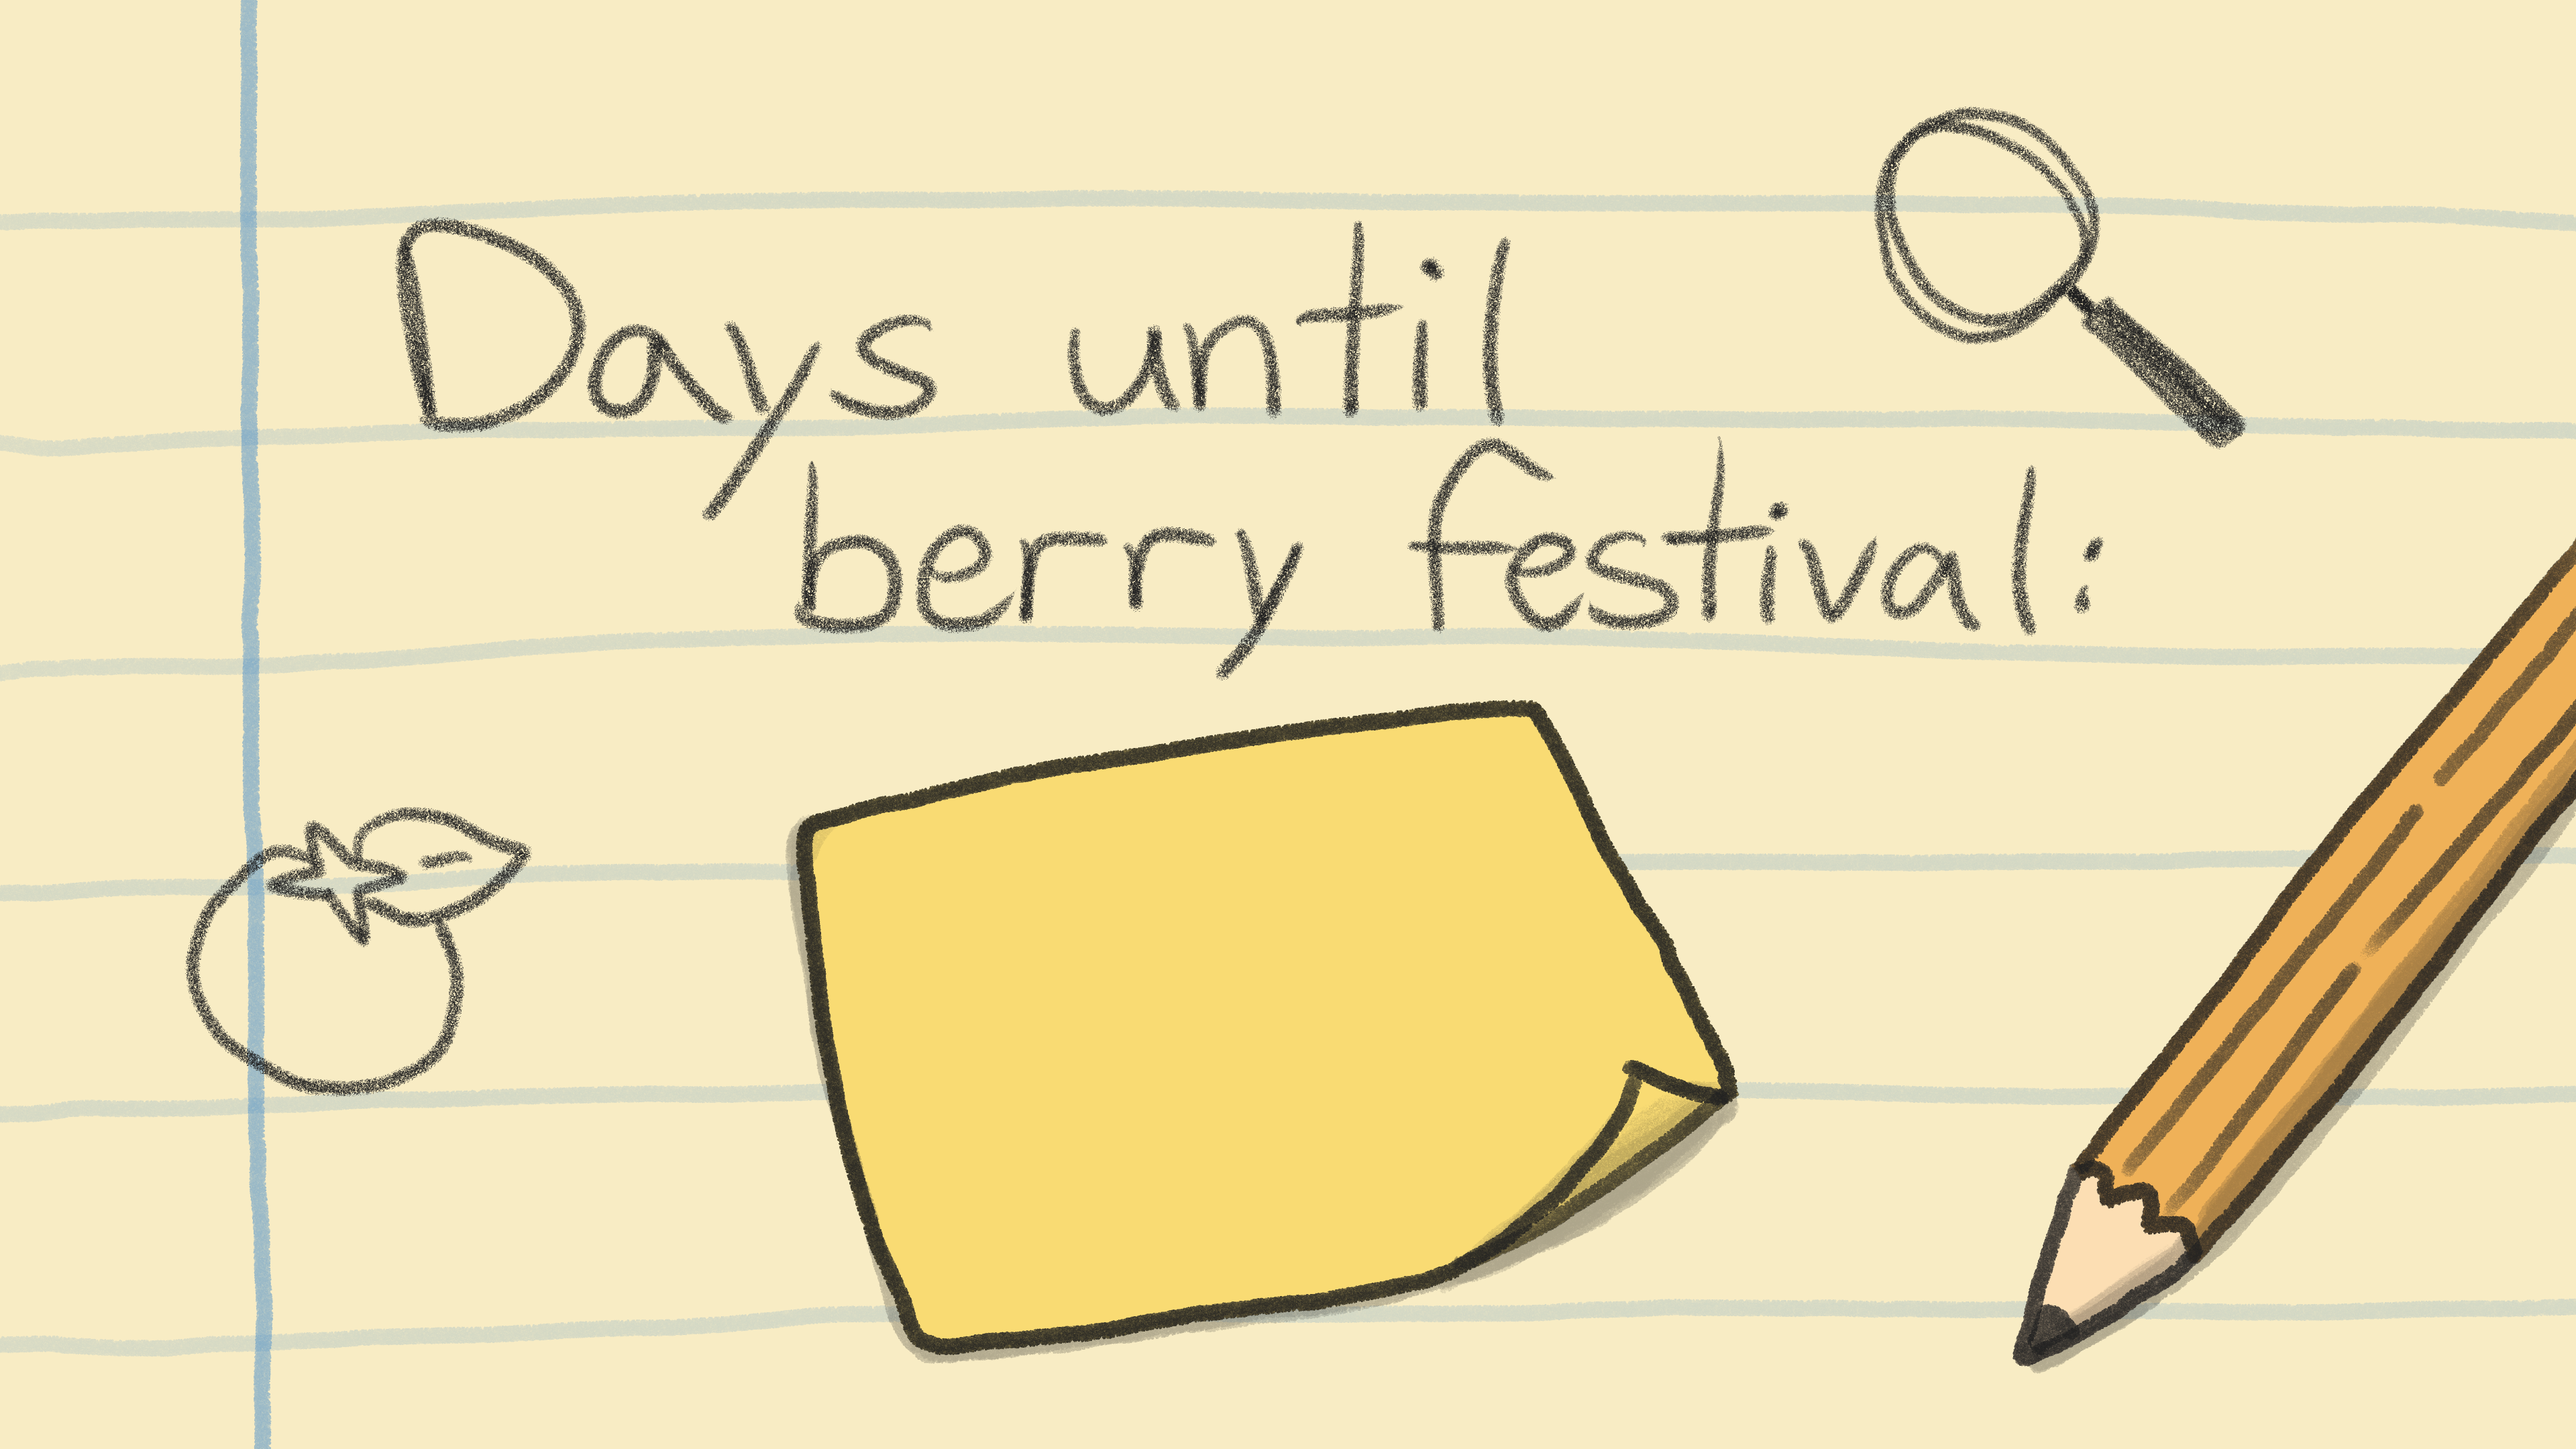 Days until
berry festival: